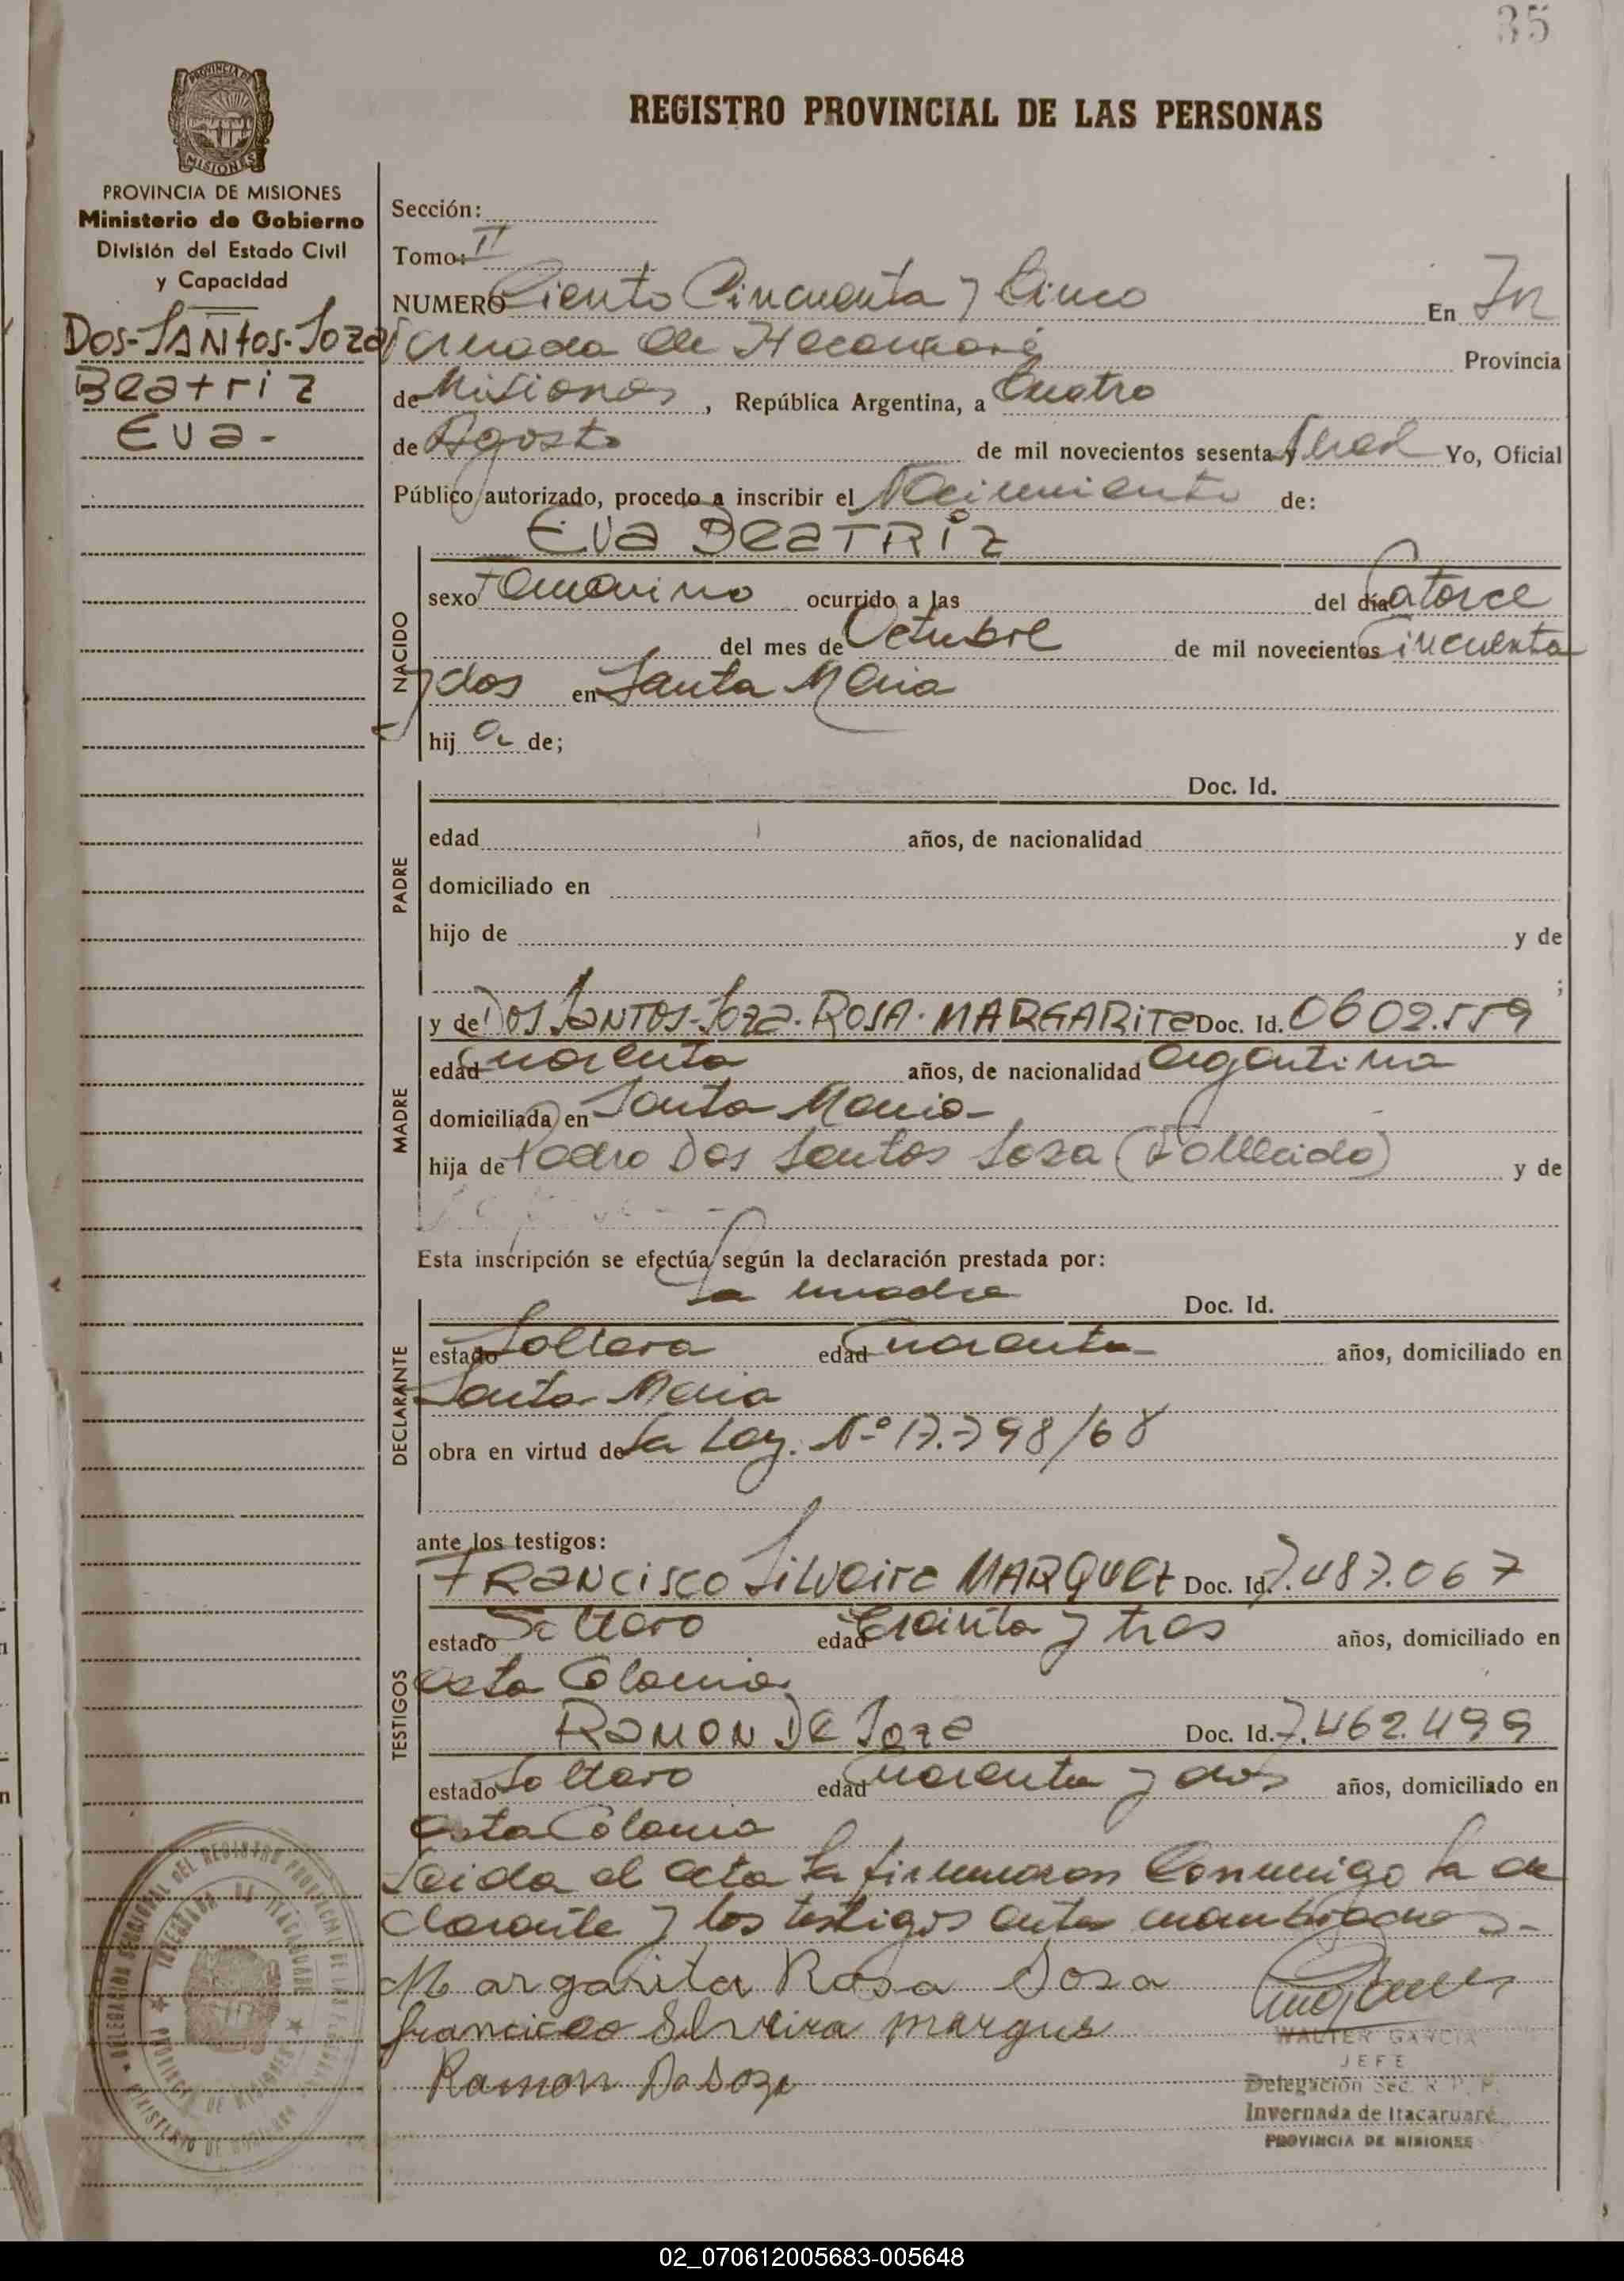 35
PROVINCIA DE
MISIONES
REGISTRO PROVINCIAL DE LAS PERSONAS
PROVINCIA DE MISIONES
Ministerio de Gobierno
División del Estado Civil
y Capacidad
Dos-SANtos-Soza
Beatriz
Eva-
Sección:
Tomo: II
NUMERO Ciento Cincuenta y Cinco En In
vernada de Itacaruaré Provincia
de Misiones, República Argentina, a Cuatro
de Agosto de mil novecientos sesenta y
Yo, Oficial
Público autorizado, procedo a inscribir el Nacimiento de:
EVa BeaTRiz
NACIDO
sexo Femenino ocurrido a las del día Catorce
del mes de Octubre de mil novecientos Cincuenta
y dos en Santa Maria
hij a de;
PADRE
Doc. Id.
edad años, de nacionalidad
domiciliado en
hijo de y de
;
MADRE
y de DOS SaNTOS-Soza-ROSA-MARGARiTa Doc. Id. 0602.559
edad cuarenta años, de nacionalidad argentina
domiciliada en Santa Maria
hija de Pedro Dos Santos Soza (Fallecido) y de
Esta inscripción se efectúa según la declaración prestada por:
La madre Doc. Id.
DECLARANTE
estado Soltera edad Cuarenta años, domiciliado en
Santa Maria
obra en virtud de La Ley. Nº 17.798/68
ante los testigos:
TESTIGOS
FRaNCisco Silveira MARQUEz Doc. Id. 7.487.067
estado Soltero edad Treinta y tres años, domiciliado en
esta Colonia
RaMON De Soza Doc. Id. 7.462.499
estado Soltero edad Cuarenta y dos años, domiciliado en
esta Colonia
Leida el acta la firmaron Conmigo la de
clarante y los testigos antes
Margarita Rosa Soza
francisco Silveira marques
Ramon Da Soza
WALTER GARCIA
JEFE
Delegación Sec. R. P. P.
Invernada de Itacaruaré
PROVINCIA DE MISIONES
DELEGACION SECCIONAL DEL REGISTRO PROVINCIAL DE LAS PERSONAS
INVERNADA DE ITACARUARE
PROVINCIA DE MISIONES
MINISTERIO DE GOBIERNO
02_070612005683-005648